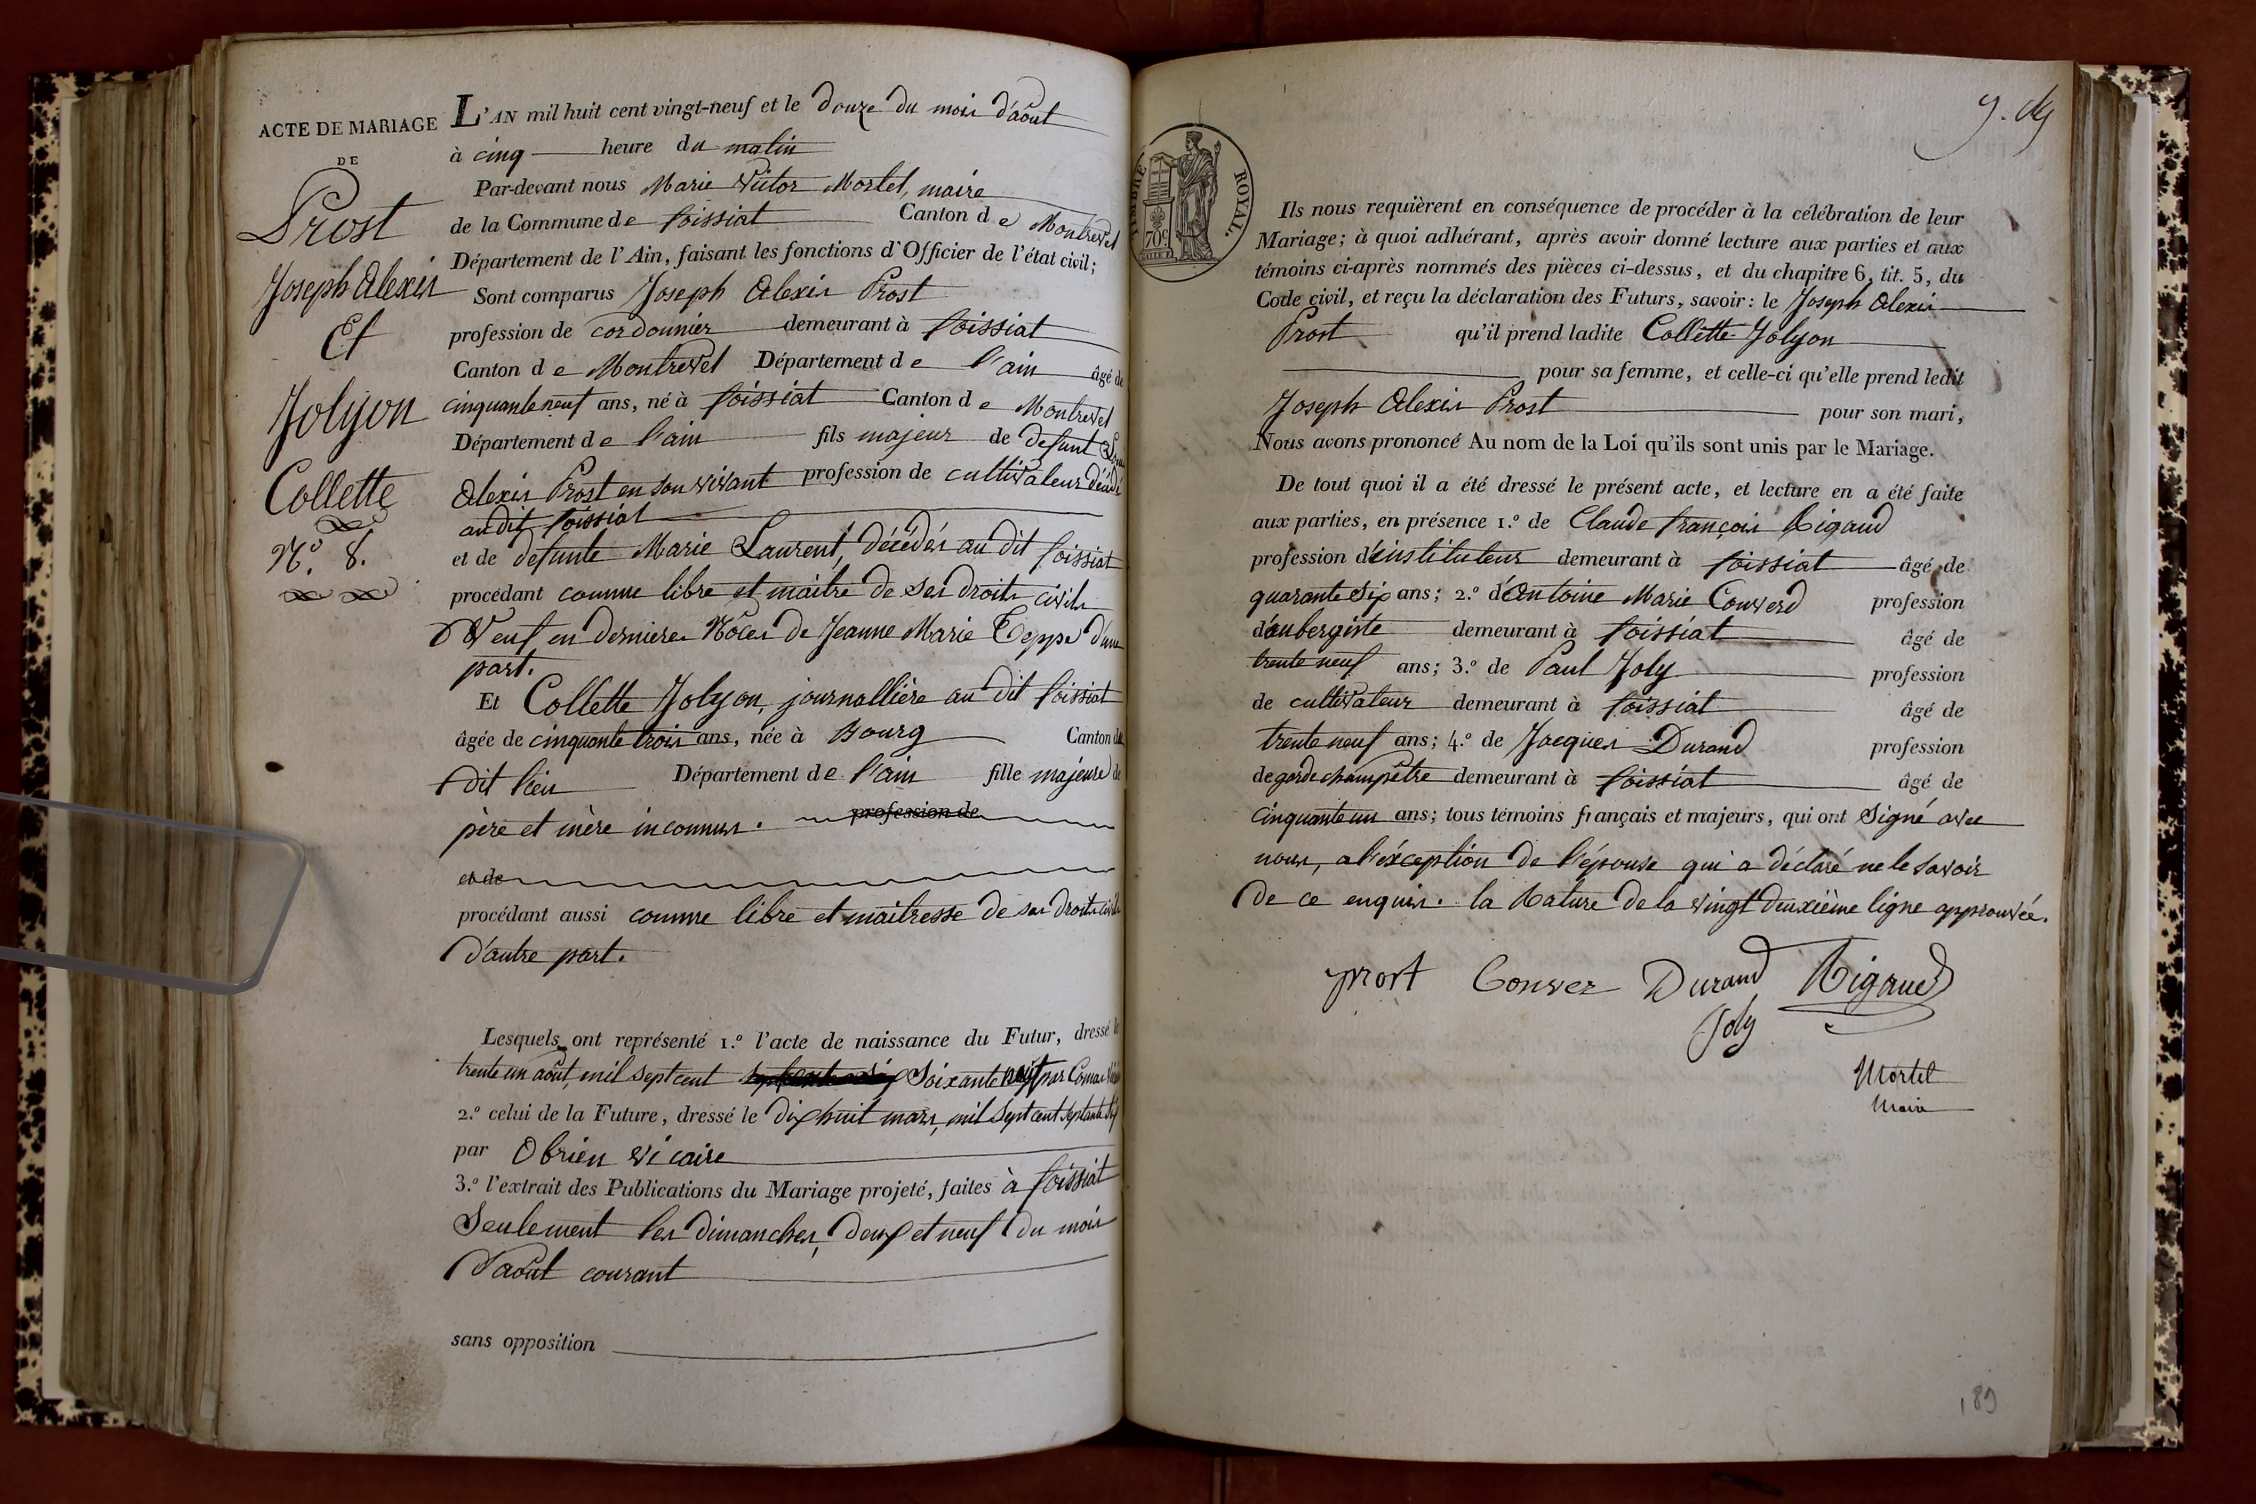 ACTE DE MARIAGE
DE
Prost
Joseph Alexis
Et
Jolyon
Collette
N.° 8.
L'AN mil huit cent vingt-neuf et le douze du mois d'août
à cinq heure du matin
Par-devant nous Marie Victor Mortel, maire
de la Commune de foissiat Canton de Montrevel
Département de l'Ain, faisant les fonctions d'Officier de l'état civil;
Sont comparus Joseph Alexis Prost
profession de cordonnier demeurant à foissiat
Canton de Montrevel Département de l'ain âgé de
cinquante neuf ans, né à foissiat Canton de Montrevel
Département de l'ain fils majeur de defunt
Alexis Prost en son vivant profession de cultivateur décédé
au dit foissiat
et de defunte Marie Laurent, décédés au dit foissiat
procédant comme libre et maitre de ses droits civils
Veuf en dernieres Noces de Jeanne Marie Teppe d'une
part.
Et Collette Jolyon, journallière au dit foissiat
âgée de cinquante trois ans, née à Bourg Canton du
dit lieu Département de l'ain fille majeure de
père et mère inconnus. profession de
et de
procédant aussi comme libre et maitresse de ses droits civils
d'autre part.
Lesquels ont représenté 1.° l'acte de naissance du Futur, dressé le
trente un août, mil sept cent soixante neuf par
2.° celui de la Future, dressé le dix huit mars, mil sept cent septante six
par Obrien vicaire
3.° l'extrait des Publications du Mariage projeté, faites à foissiat
Seulement les dimanches, deux et neuf du mois
d'août courant
sans opposition
TIMBRE ROYAL.
70 c
Ils nous requièrent en conséquence de procéder à la célébration de leur
Mariage; à quoi adhérant, après avoir donné lecture aux parties et aux
témoins ci-après nommés des pièces ci-dessus, et du chapitre 6, tit. 5, du
Code civil, et reçu la déclaration des Futurs, savoir: le Joseph Alexis
Prost qu'il prend ladite Collette Jolyon
pour sa femme, et celle-ci qu'elle prend ledit
Joseph Alexis Prost pour son mari,
Nous avons prononcé Au nom de la Loi qu'ils sont unis par le Mariage.
De tout quoi il a été dressé le présent acte, et lecture en a été faite
aux parties, en présence 1.° de Claude françois Rigaud
profession d'instituteur demeurant à foissiat âgé de
quarante six ans; 2.° d'Antoine Marie Converd profession
d'aubergiste demeurant à foissiat âgé de
trente neuf ans; 3.° de Paul Joly profession
de cultivateur demeurant à foissiat âgé de
trente neuf ans; 4.° de Jacques Durand profession
de garde champêtre demeurant à foissiat âgé de
cinquante un ans; tous témoins français et majeurs, qui ont signé avec
nous, a l'éxception de l'épouse qui a déclaré ne le savoir
de ce enquis. la Rature de la vingt deuxième ligne approuvée.
prost Conver Durand Rigaud
Joly
Mortel
Maire
189